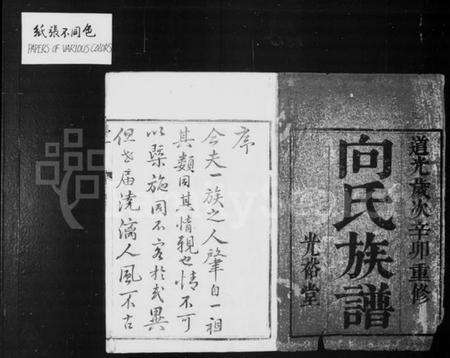 紙張不同色
PAPERS OF VARIOUS COLORS
道光歲次辛卯重修
向氏族譜
光裕堂
序
今夫一族之人肇自一祖
其類同其情親也情不可
以槩施同不容於或異
但世届澆漓人風不古